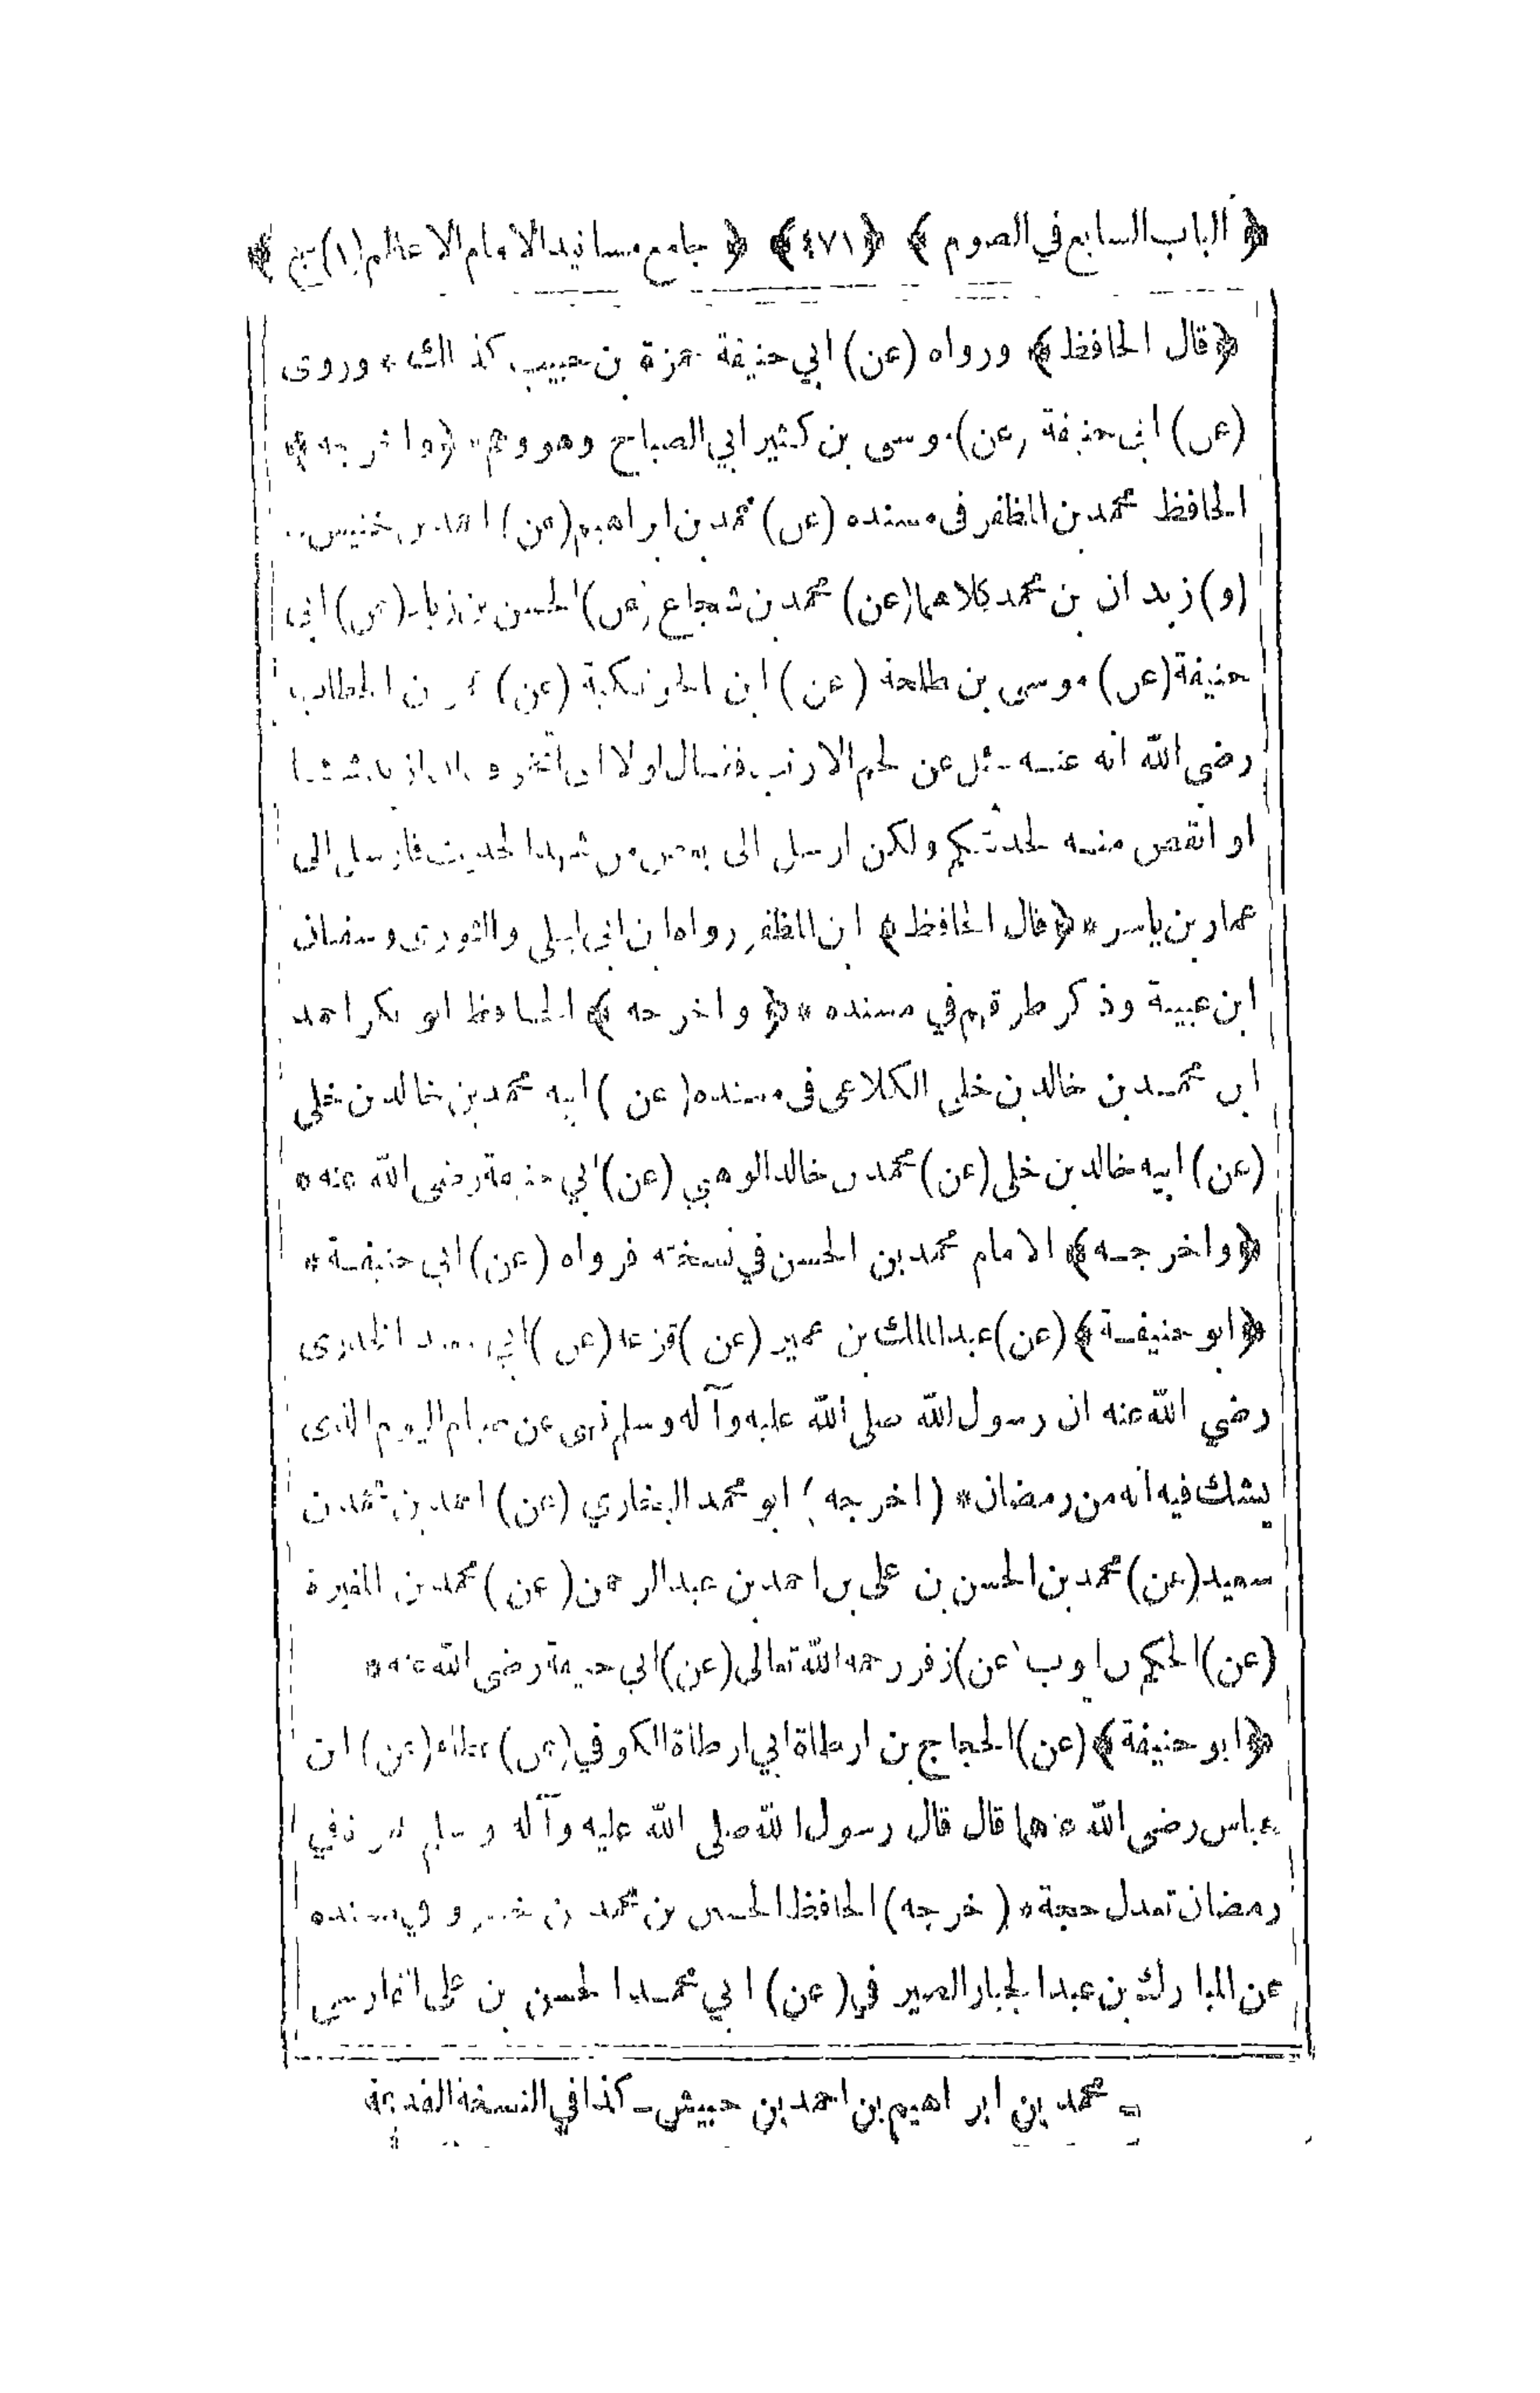 ﴿ الباب السابع في الصوم ﴾ ﴿٤٧١﴾ ﴿ جامع مسانيد الامام الاعظم (١) ج ﴾
﴿قال الحافظ﴾ ورواه (عن) ابي حنيفة حمزة بن حبيب كذ الك * وروى
(عن) ابى حنيفة (عن) موسى بن كثير ابي الصباح وهو وهم * ﴿واخرجه﴾
الحافظ محمد بن المظفر فى مسنده (عن) محمد بن ابراهيم (عن) احمد بن خنيس
(و) زيد ان بن محمد كلاهما (عن) محمد بن شجاع (عن) الحسن بن زياد (عن) ابى
حنيفة (عن) موسى بن طلحة (عن) ابن الحوتكية (عن) عمر بن الخطاب
رضى الله انه عنه سئل عن لحم الارنب فقال لولا انى اتخوف ان ازيد شيئا
او انقص منه لحدثتكم ولكن ارسل الى بعض من شهد الحديث فارسل الى
عمار بن ياسر * ﴿قال الحافظ﴾ ابن المظفر رواه ابن ابى ليلى والثورى وسفيان
ابن عيينة وذكر طرقهم في مسنده * ﴿واخرجه﴾ الحافظ ابو بكر احمد
ابن محمد بن خالد بن خلي الكلاعى فى مسنده (عن) ابيه محمد بن خالد بن خلي
(عن) ابيه خالد بن خلى (عن) محمد بن خالد الوهبي (عن) ابي حنيفة رضى الله عنه *
﴿واخرجه﴾ الامام محمد بن الحسن في نسخته فرواه (عن) ابي حنيفة *
﴿ابو حنيفة﴾ (عن) عبد الملك بن عمير (عن) قزعة (عن) ابي سعيد الخدرى
رضي الله عنه ان رسول الله صلى الله عليه وآله وسلم نهى عن صيام اليوم الذى
يشك فيه انه من رمضان * (اخرجه) ابو محمد البخاري (عن) احمد بن محمد بن
سعيد (عن) محمد بن الحسن بن على بن احمد بن عبد الرحمن (عن) محمد بن المغيرة
(عن) الحكم بن ايوب (عن) زفر رحمه الله تعالى (عن) ابي حنيفة رضى الله عنه *
﴿ابو حنيفة﴾ (عن) الحجاج بن ارطاة ابي ارطاة الكوفي (عن) عطاء (عن) ابن
عباس رضى الله عنهما قال قال رسول الله صلى الله عليه وآله وسلم عمرة في
رمضان تعدل حجة * (خرجه) الحافظ الحسين بن محمد بن خسرو في مسنده
عن المبارك بن عبد الجبار الصيرفي (عن) ابي محمد الحسن بن على الفارسى
ـ محمد بن ابراهيم بن احمد بن حبيش ـ كذا في النسخة القديمة